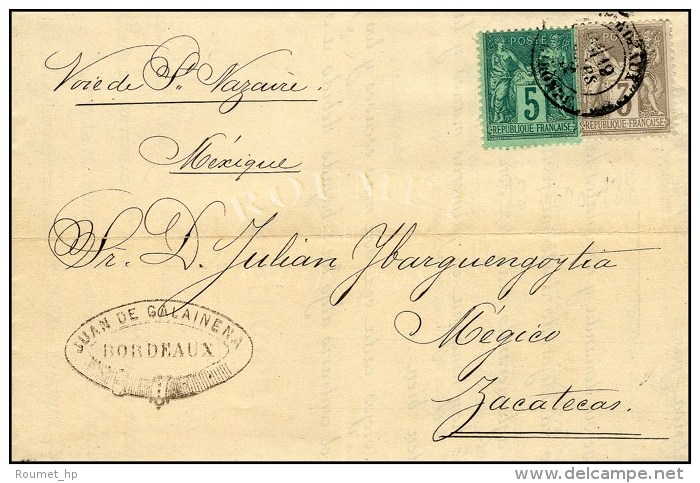 Voie de St. Nazaire.
POSTE
5
REPUBLIQUE FRANÇAISE
3
REPUBLIQUE FRANÇAISE
BORDEAUX
19
Méxique
ROUMET
Sr. D. Julian Ybarguengoytia
Mégico
Zacatecas.
JUAN DE GALAINENA
BORDEAUX
Roumet_hp
www.delcampe.net